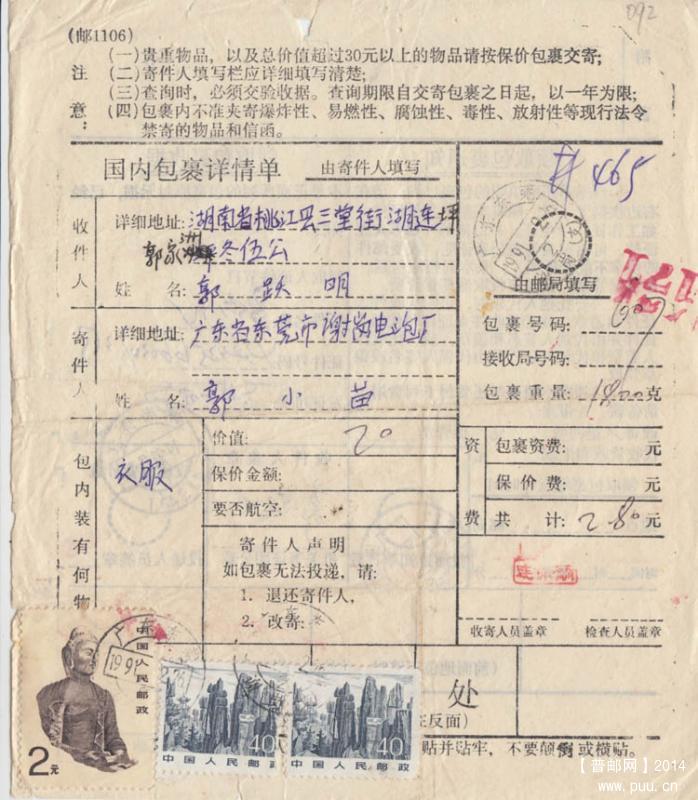 092
(邮1106)
注意:
(一)贵重物品，以及总价值超过30元以上的物品请按保价包裹交寄;
(二)寄件人填写栏应详细填写清楚;
(三)查询时，必须交验收据。查询期限自交寄包裹之日起，以一年为限;
(四)包裹内不准夹寄爆炸性、易燃性、腐蚀性、毒性、放射性等现行法令
禁寄的物品和信函。
国内包裹详情单 由寄件人填写
#465
收件人
详细地址: 湖南省桃江县三堂街湖莲坪
郭家洲 冬伍公
姓 名: 郭跃明
寄件人
详细地址: 广东省东莞市谢岗电池厂
姓 名: 郭小苗
由邮局填写
包裹号码:
接收局号码:
包裹重量: 克
包内装有何物
衣服
价值: 20
保价金额:
要否航空:
寄件人声明
如包裹无法投递，请:
1. 退还寄件人，
2. 改寄:
资费
包裹资费: 元
保价费: 元
共计: 2.80 元
收寄人员盖章 检查人员盖章
处
反面)
贴并贴牢，不要颠倒或横贴。
中国人民邮政
2元
40
中国人民邮政
40
中国人民邮政
【普邮网】2014
www.puu.cn